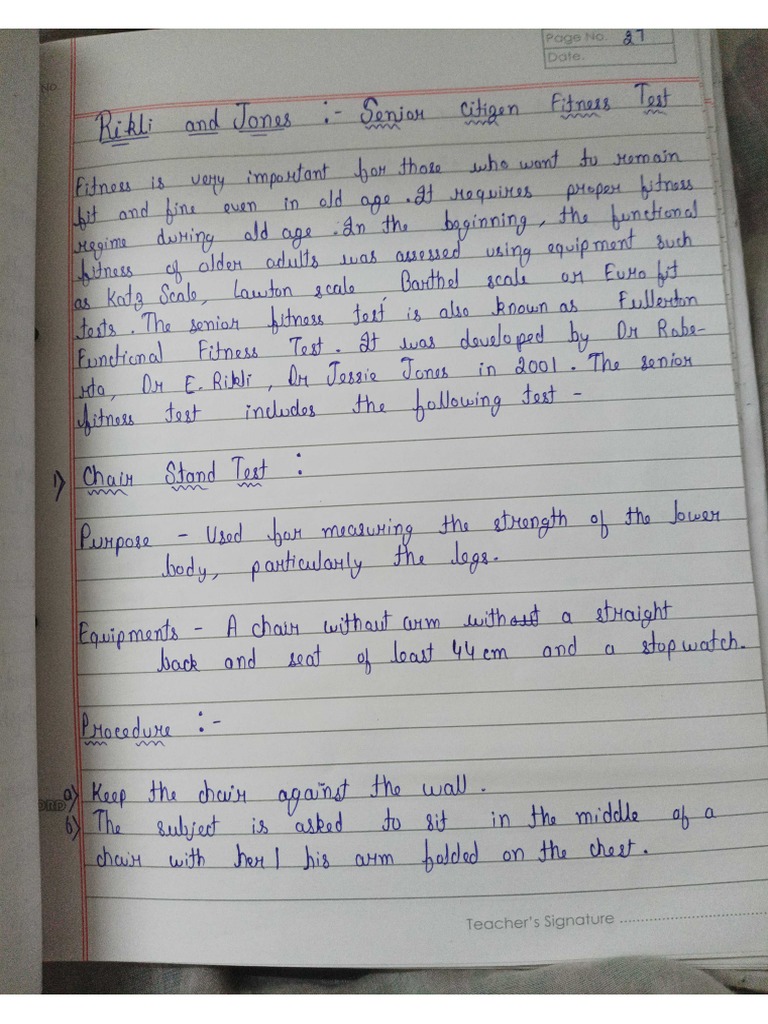 No.
Page No. 27
Date.
Rikli and Jones :- Senior Citigen Fitness Test
Fitness is very important for those who want to remain
fit and fine even in old age. It requires proper fitness
regime during old age. In the beginning, the functional
fitness of older adults was assessed using equipment such
as Katz Scale, Lawton scale, Barthel scale or Euro fit
tests. The senior fitness test is also known as Fullerton
Functional Fitness Test. It was developed by Dr Robe-
rta, Dr E. Rikli, Dr Jessie Jones in 2001. The senior
fitness test includes the following test -
1) Chair Stand Test :
Purpose - Used for measuring the strength of the lower
body, particularly the legs.
Equipments - A chair without arm with a straight
back and seat of least 44 cm and a stopwatch.
Procedure :-
a) Keep the chair against the wall.
b) The subject is asked to sit in the middle of a
chair with her / his arm folded on the chest.
Teacher's Signature